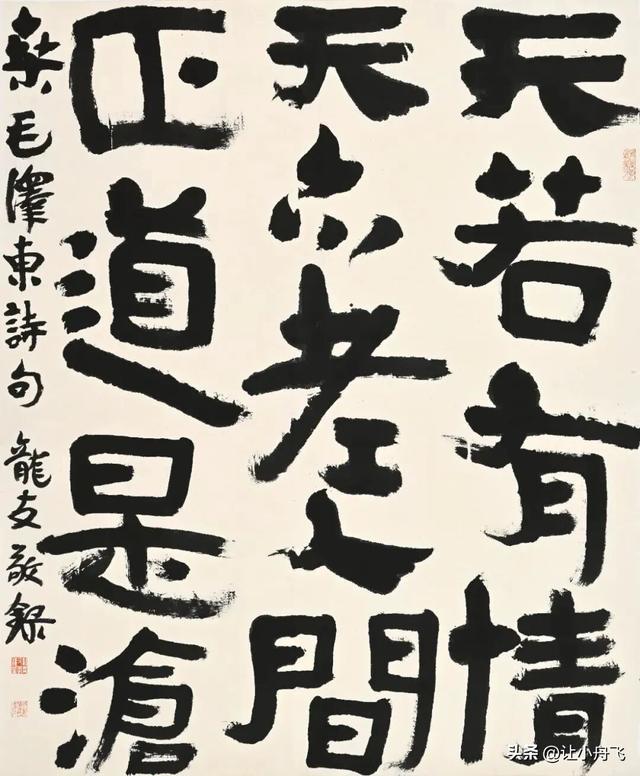 天若有情
天亦老人間
正道是滄
桑毛澤東詩句 龍友敬錄
头条 @让小舟飞